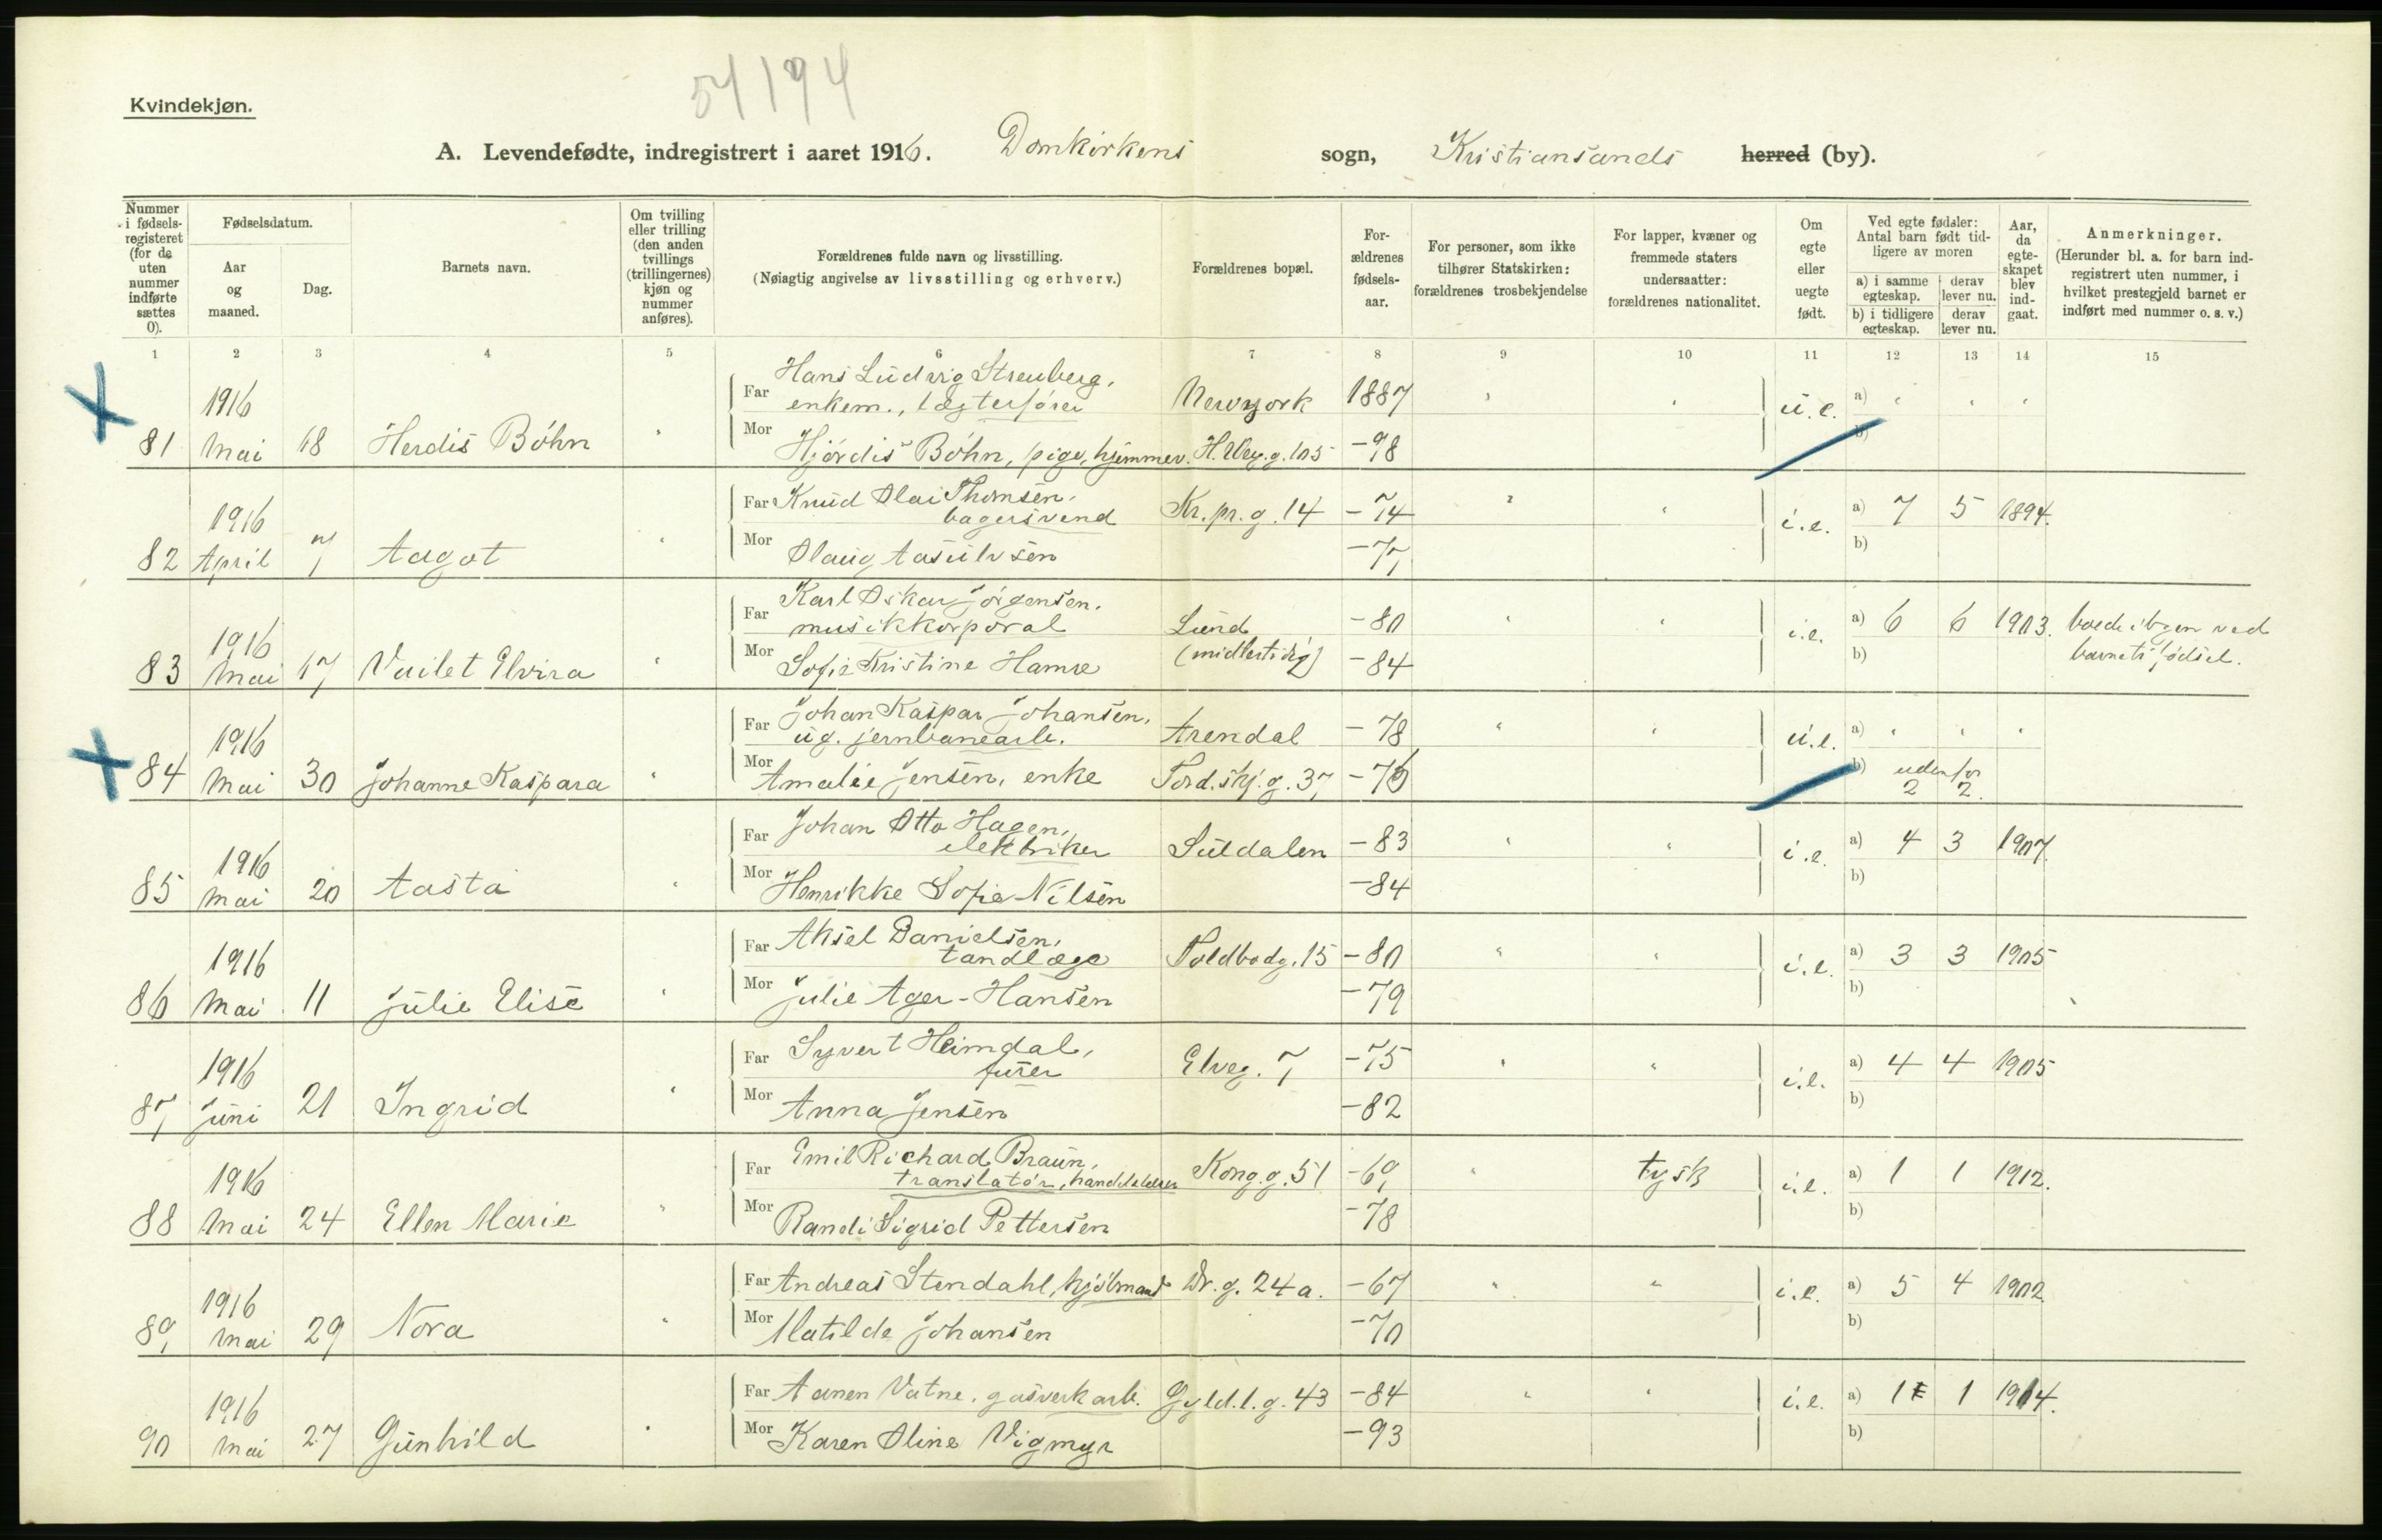 54194
Kvindekjøn.
A. Levendefødte, indregistrert i aaret 1916. Domkirkens sogn, Kristiansands herred (by).
Nummer i fødsels-registeret (for de uten nummer indførte sættes 0).
Fødselsdatum.
Aar og maaned.
Dag.
Barnets navn.
Om tvilling eller trilling (den anden tvillings (trillingernes) kjøn og nummer anføres).
Forældrenes fulde navn og livsstilling.
(Nøiagtig angivelse av livsstilling og erhverv.)
Forældrenes bopæl.
For-ældrenes fødsels-aar.
For personer, som ikke tilhører Statskirken: forældrenes trosbekjendelse
For lapper, kvæner og fremmede staters undersaatter: forældrenes nationalitet.
Om egte eller uegte født.
Ved egte fødsler: Antal barn født tid-ligere av moren
a) i samme egteskap. derav lever nu.
b) i tidligere egteskap. derav lever nu.
Aar, da egte-skapet blev ind-gaat.
Anmerkninger.
(Herunder bl. a. for barn ind-registrert uten nummer, i hvilket prestegjeld barnet er indført med nummer o. s. v.)
1 2 3 4 5 6 7 8 9 10 11 12 13 14 15
Far Hans Ludvig Streuberg,
enkem., lægterfører Newyork 1887 u.e. a)
81 1916 Mai 18 Herdis Bøhn
Mor Hjørdis Bøhn, pige, hjemmev. H.Weg.g. 105 -98 b)
Far Knud Olai Thomsen,
bagersvend Kr.pr.g. 14 -74 i.e. a) 7 5 1894.
82 1916 April 7 Aagot
Mor Olaug Aasulvsen -77 b)
Far Karl Oskar Jørgensen,
musikkorporal Lund -80 i.e. a) 6 6 1903. boede i byen ved
83 1916 Mai 17 Vailet Elvira
Mor Sofie Kristine Hamre (midlertidig) -84 b) barnets fødsel.
Far Johan Kaspar Johansen,
ug. jernbanearb. Arendal -78 u.e. a)
84 1916 Mai 30 Johanne Kaspara
Mor Amalie Jensen, enke Tord.skj.g. 37 -76 b) udenfor
2 2.
Far Johan Otto Hagen,
elektriker Suldalen -83 i.e. a) 4 3 1907.
85 1916 Mai 20 Aasta
Mor Henrikke Sofie Nilsen -84 b)
Far Aksel Danielsen,
tandlæge Toldbodg. 15 -80 i.e. a) 3 3 1905
86 1916 Mai 11 Julie Elise
Mor Julie Ager-Hansen -79 b)
Far Syvert Heimdal,
furer Elveg. 7 -75 i.e. a) 4 4 1905
87 1916 Juni 21 Ingrid
Mor Anna Jensen -82 b)
Far Emil Richard Braun,
translatør, Kong.g. 51 -69 tysk i.e. a) 1 1 1912.
88 1916 Mai 24 Ellen Marie
Mor Randi Sigrid Pettersen -78 b)
Far Andreas Stendahl, kjølmand Dr.g. 24 a. -67 i.e. a) 5 4 1902.
89 1916 Mai 29 Nora
Mor Matilde Johansen -70 b)
Far Aanen Vatne, gasverkarb. Gyld.l.g. 43 -84 i.e. a) 1 1 1914.
90 1916 Mai 27 Gunhild
Mor Karen Oline Vigmyr -93 b)